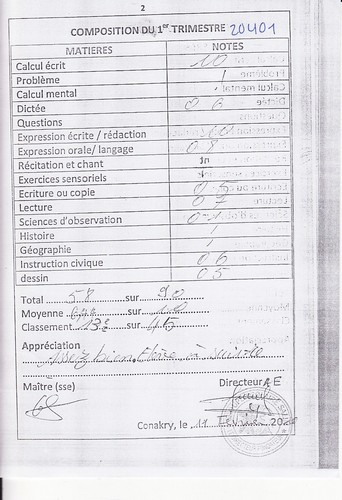 2
COMPOSITION DU 1er TRIMESTRE 20401
MATIERES NOTES
Calcul écrit 10
Problème /
Calcul mental
Dictée 06
Questions
Expression écrite / rédaction
Expression orale/ langage 08
Récitation et chant
Exercices sensoriels
Ecriture ou copie 05
Lecture 07
Sciences d'observation
Histoire /
Géographie /
Instruction civique 06
dessin 05
Total 58 sur 90
Moyenne sur 10
Classement 13e sur 45
Appréciation
Assez bien. Elève à suivre
Maître (sse) Directeur
Conakry, le 11